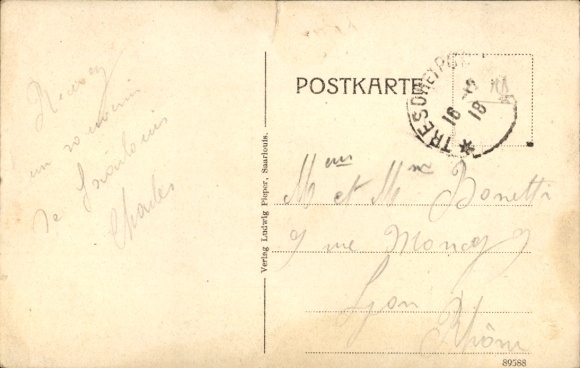 un souvenir
de
Charles
Verlag Ludwig Pieper, Saarlouis.
POSTKARTE
TRESOR ET POSTES
16 12 18
*
Mr et Mme Bonetti
9 rue Moncey 9
Lyon
Rhône
89588